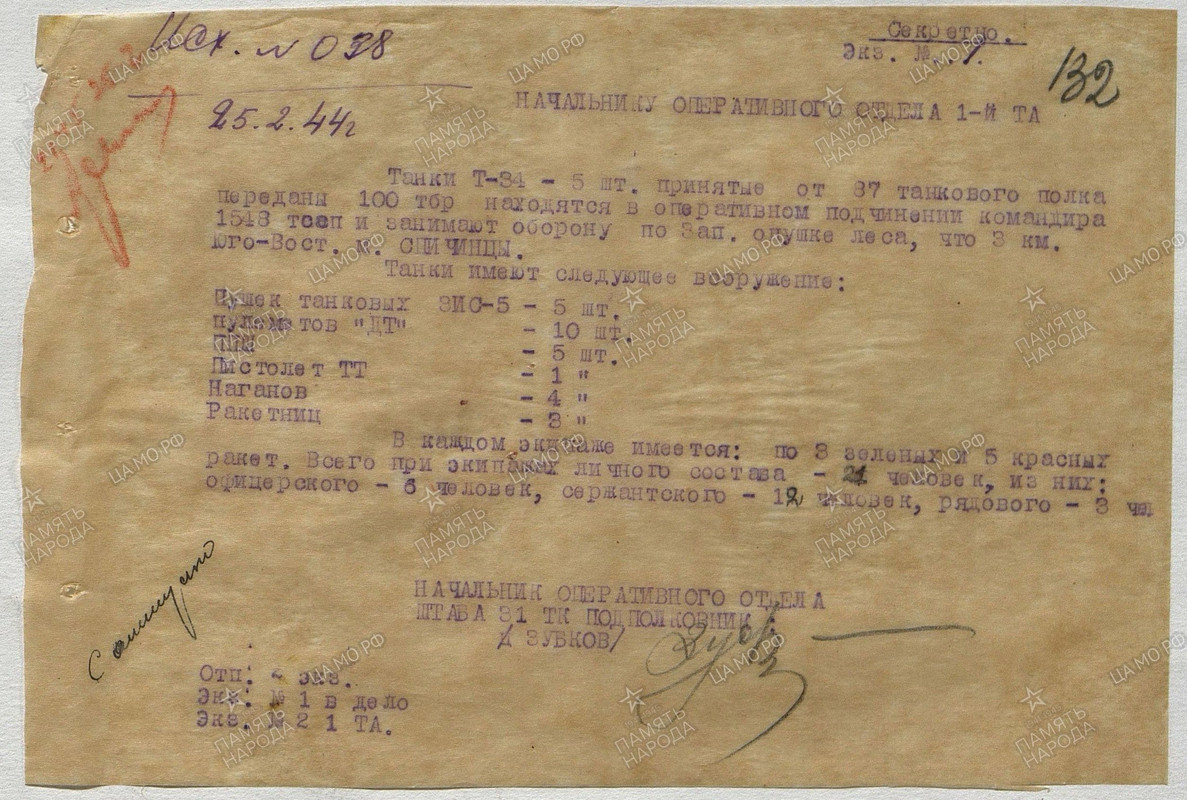 Исх. № 038
Секретно.
Экз. № 1.
132
25.2.44г
НАЧАЛЬНИКУ ОПЕРАТИВНОГО ОТДЕЛА 1-Й ТА
Танки Т-34 - 5 шт. принятые от 87 танкового полка
переданы 100 тбр находятся в оперативном подчинении командира
1543 тсап и занимают оборону по Зап. опушке леса, что 3 км.
Юго-Вост. м. СПИЧИНЦЫ.
Танки имеют следующее вооружение:
Пушек танковых ЗИС-5 - 5 шт.
пулеметов "ДТ" - 10 шт.
ППШ - 5 шт.
Пистолет ТТ - 1 "
Наганов - 4 "
Ракетниц - 3 "
В каждом экипаже имеется: по 3 зеленых и 5 красных
ракет. Всего при экипажах личного состава - 21 человек, из них:
офицерского - 6 человек, сержантского - 12 человек, рядового - 3 чел
НАЧАЛЬНИК ОПЕРАТИВНОГО ОТДЕЛА
ШТАБА 31 ТК ПОДПОЛКОВНИК:
/ ЗУБКОВ/
Отп: 2 экз.
Экз: № 1 в дело
Экз. № 2 1 ТА.
ПАМЯТЬ НАРОДА
ЦАМО.РФ